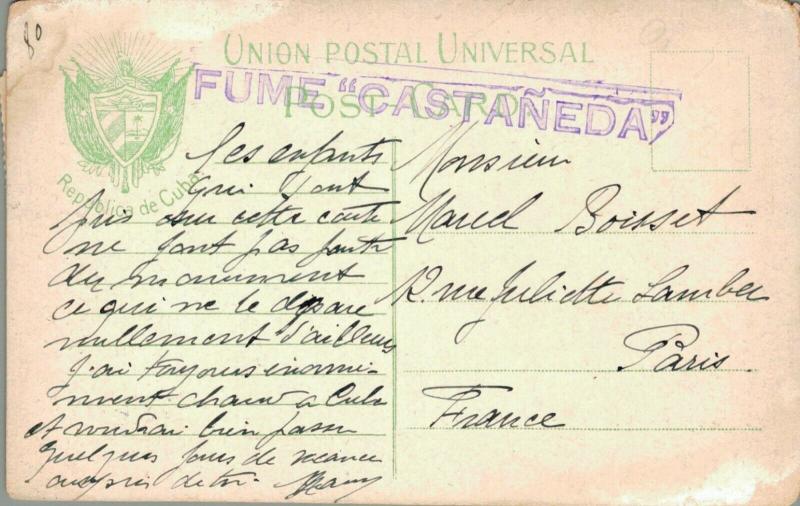 80
UNION POSTAL UNIVERSAL
POST CARD
FUME "CASTAÑEDA"
República de Cuba
Les enfants
qui sont
pris sur cette carte
ne font pas partie
du monument
ce qui ne le dépare
nullement d'ailleurs
j'ai toujours énormé-
ment chaud a Cuba
et voudrai bien passer
quelques jours de vacance
auprès de toi.
Monsieur
Marcel Boisset
12. rue Juliette Lamber
Paris.
France